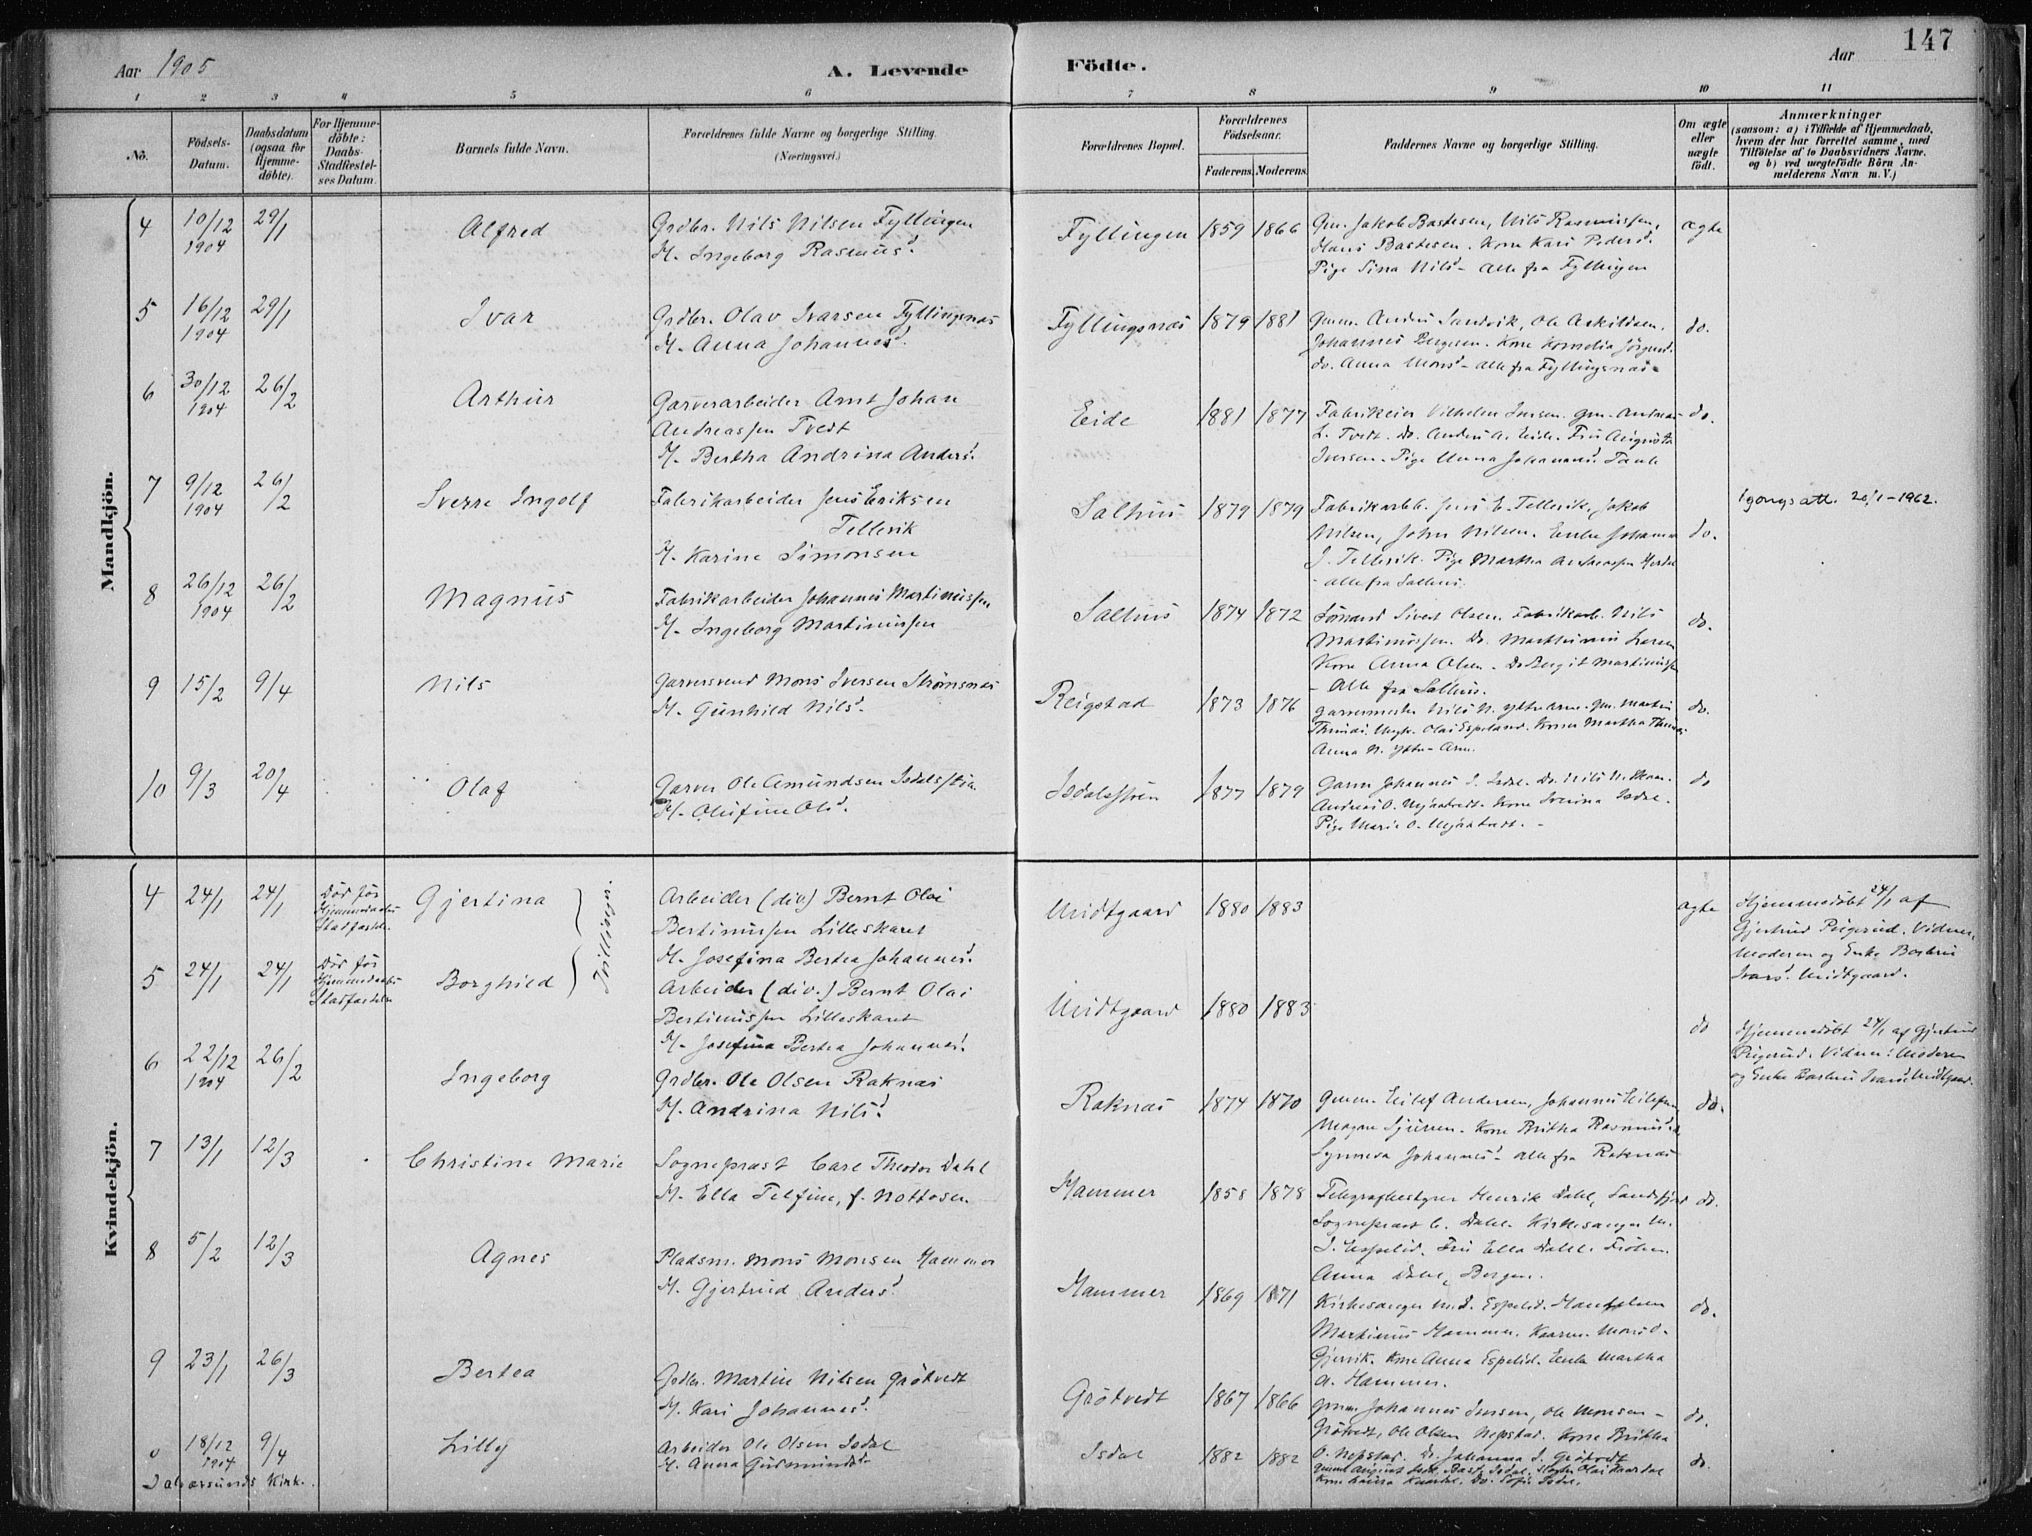 147
Aar 1905
A. Levende Födte.
Aar
1 2 3 4 5 6 7 8 9 10 11
No.
Födsels-Datum.
Daabsdatum (ogsaa for Hjemme-döbte).
For Hjemme-döbte: Daabs-Stadfæstel-ses Datum.
Barnets fulde Navn.
Forældrenes fulde Navne og borgerlige Stilling. (Næringsvei.)
Forældrenes Bopæl.
Forældrenes Födselsaar.
Faderens. Moderens.
Faddernes Navne og borgerlige Stilling.
Om ægte eller uægte födt.
Anmærkninger
(saasom: a) i Tilfælde af Hjemmedaab, hvem der har forrettet samme, med Tilföielse af to Daabsvidners Navne, og b) ved uegtefödte Börn An-melderens Navn m. V.)
Mandkjön.
4 10/12 1904 29/1 Alfred
Grdbr. Nils Nilsen Fyllingen
H. Ingeborg Rasmusd.
Fyllingen 1859 1866
Gm. Jakob Bastesen, Nils Rasmussen,
Hans Bastesen. Kone Kari Pedersd.
Pige Sina Nilsd - alle fra Fyllingen
ægte
5 16/12 1904 29/1 Ivar
Grdbr. Olav Ivarsen Fyllingsnæs
H. Anna Johannesd.
Fyllingsnæs 1879 1881
Gmm. Anders Sandvik, Ole Askildsen,
Johannes Bergesen. Kone Kornelia
do. Anna Monsd - alle fra Fyllingsnæs
do.
6 30/12 1904 26/2 Arthur
Garverarbeider Arnt Johan
Andreassen Tvedt
H. Bertha Andrina Andersd.
Eide 1881 1877
Fabrikeier Vilhelm Iversen. Gm. Andreas
L. Tvedt. Do. Anders A. Eide. Fru Augusta
Iversen. Pige Anna Johannesd.
do.
7 9/12 1904 26/2 Sverre Ingolf
Fabrikarbeider Jens Eriksen
Tellevik
H. Karine Simonsen
Salhus 1879 1879
Fabrikarbb. Jens E. Tellevik, Jakob
Nilsen, John Nilsen. Enke Johanna
J. Tellevik. Pige Martha Andreassen
- alle fra Salhus.
do.
Igongs att. 20/1-1962.
8 26/12 1904 26/2 Magnus
Fabrikarbeider Johannes Martinussen
H. Ingeborg Martinussen
Salhus 1874 1872
Sömand Sivert Olsen. Fabrikarb. Nils
Martinussen. Do. Marthinus Larsen
Kone Anna Olsen. Do Bergit Martinussen
- Alle fra Salhus.
do.
9 15/2 9/4 Nils
Garversvend Mons Iversen Strømsnæs
H. Gunhild Nilsd.
Reigstad 1873 1876
Garvermester Nils N. Ytre Arne. Gm. Martin
Olai Espeland. Koner Martha
Anna N. Ytre-Arne.
do.
10 9/3 20/4 Olaf
Garver Ole Amundsen Isdalsstøen
H. Olufine Olsd.
Isdalsstøen 1877 1879
Garver Johannes J. Isdal. Do. Nils N.
Andreas O. Mjaatvedt. Kone Isdal.
Pige Marie O. Mjaatvedt.
do
Kvindekjön.
4 24/1 24/1
Död før Hjemmedaabs Stadfæstelse.
Gjertina
Tvillinger.
Arbeider (div) Bernt Olai
Bertinussen Lilleskaret
H. Josefina Bertea Johannesd.
Midtgaard 1880 1883
ægte
Hjemmedöbt 24/1 af
Gjertrud Pigerud. Vidner:
Moderen og Enke
Ivarsd. Midtgaard.
5 24/1 24/1
Död før Hjemmedaabs Stadfæstelse
Borghild
Arbeider (div.) Bernt Olai
Bertinussen Lilleskaret
H. Josefina Bertea Johannesd.
Midtgaard 1880 1883
do
Hjemmedöbt 24/1 af Gjertrud
Pigerud. Vidner: Moderen
og Enke Ivarsd Midtgaard.
6 22/12 1904 26/2 Ingeborg
Grdbr. Ole Olsen Raknæs
H. Andrina Nilsd.
Raknæs 1874 1870
Gmm. Eilef Andersen, Johannes Eilefsen,
Magne Sjursen. Kone Britha Rasmusd.
Synneva Johannesd - alle fra Raknæs
do.
7 13/1 12/3 Christine Marie
Sogneprest Carl Theodor Dahl
H. Ella Telfine, f. Nottosen
Hammer 1858 1878
Telegrafbestyrer Henrik Dahl, Sandefjord
Sogneprest C. Dahl. Kirkesanger M.
J. Espelid. Fru Ella Dahl. Frøken
Anna Dahl, Bergen.
do.
8 5/2 12/3 Agnes
Pladsm. Mons Monsen Hammer
H. Gjertrud Andersd
Hammer 1869 1871
Kirkesanger M. J. Espelid. Handelsm
Martinus Hammer. Monsd.
Gjervik. Kone Anna Espelid. Enke Martha
A. Hammer.
do.
9 23/1 26/3 Bertea
Grdbr. Martin Nilsen Grötvedt
H. Kari Johannesd.
Grötvedt 1867 1866
Gmm. Johannes Iversen, Ole Monsen
Grötvedt, Ole Olsen Nepstad. Kone Britha
O. Nepstad. Do. Johanna J. Grötvedt
do.
0 18/12 1904 9/4 Lilly
Arbeider Ole Olsen Isdal
H. Anna Gudmundsd.
Isdal 1882 1882
do.
Alversunds Kirk.